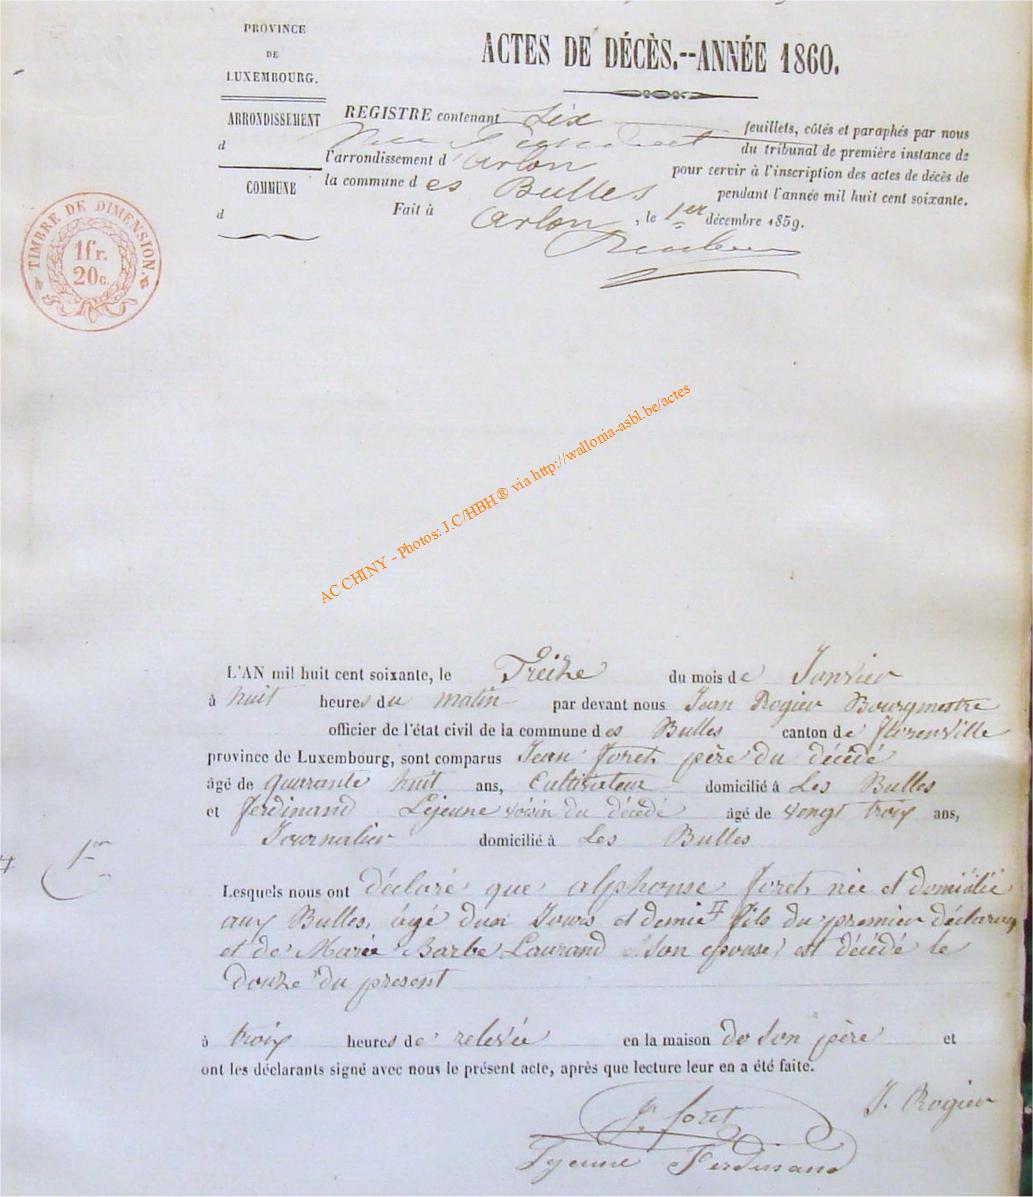 PROVINCE
DE
LUXEMBOURG.
ARRONDISSEMENT
d
COMMUNE
d
ACTES DE DÉCÈS.--ANNÉE 1860.
REGISTRE contenant Six feuillets, côtés et paraphés par nous
du tribunal de première instance de
l'arrondissement d'Arlon pour servir à l'inscription des actes de décès de
la commune des Bulles pendant l'année mil huit cent soixante.
Fait à Arlon, le 1er décembre 1859.
TIMBRE DE DIMENSION.
1fr.
20c.
AC CHINY - Photos: J.C/HBH® via http://wallonia-asbl.be/actes
L'AN mil huit cent soixante, le Treize du mois de Janvier
à huit heures du matin par devant nous Jean Rogier Bourgmestre
officier de l'état civil de la commune des Bulles canton de Florenville
province de Luxembourg, sont comparus Jean Foret père du décédé
âgé de quarante huit ans, Cultivateur domicilié à Les Bulles
et Ferdinand Lejeune voisin du décédé âgé de vengt troix ans,
Journalier domicilié à Les Bulles
1er
Lesquels nous ont déclaré que alphonse Foret née et domicilié
aux Bulles, âgé deux Jours et demie # fils du premier déclarant
et de Marie Barbe Laurand son epouse, est décédé le
douze du present
à troix heures de relevée en la maison de son père et
ont les déclarants signé avec nous le présent acte, après que lecture leur en a été faite.
J. Rogier
J. foret
Lejeune Ferdinand